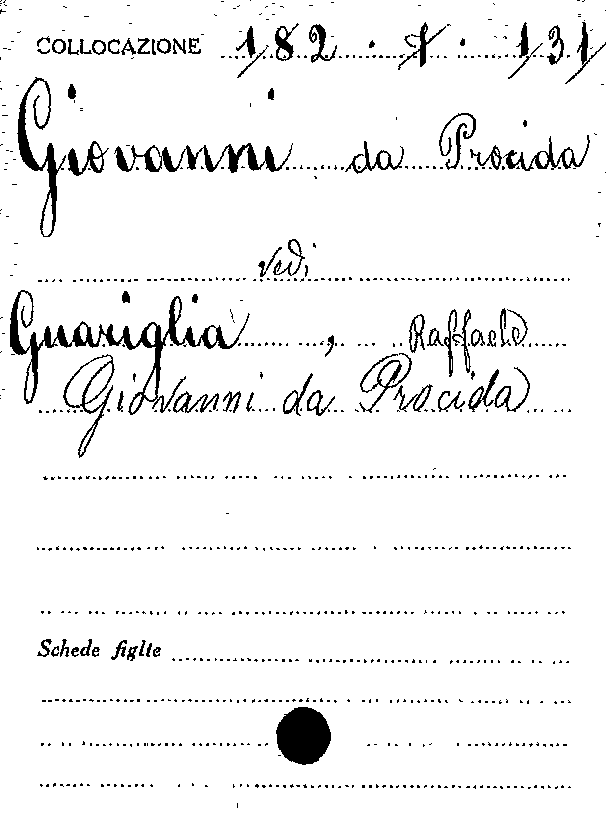 COLLOCAZIONE 182 . 7 . 131
Giovanni da Procida
vedi
Guariglia, Raffaele
Giovanni da Procida
Schede figlie